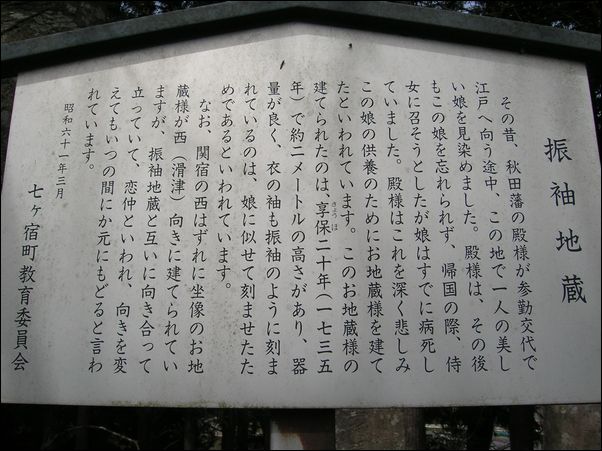 振袖地蔵
その昔、秋田藩の殿様が参勤交代で
江戸へ向う途中、この地で一人の美し
い娘を見染めました。殿様は、その後
もこの娘を忘れられず、帰国の際、侍
女に召そうとしたが娘はすでに病死し
ていました。殿様はこれを深く悲しみ
この娘の供養のためにお地蔵様を建て
たといわれています。このお地蔵様の
建てられたのは、享保二十年(一七三五
きょうほ
年)で約二メートルの高さがあり、器
量が良く、衣の袖も振袖のように刻ま
れているのは、娘に似せて刻ませたた
めであるといわれています。
なお、関宿の西はずれに坐像のお地
蔵様が西(滑津)向きに建てられてい
ますが、振袖地蔵と互いに向き合って
立っていて、恋仲といわれ、向きを変
えてもいつの間にか元にもどると言わ
れています。
昭和六十一年三月
七ヶ宿町教育委員会